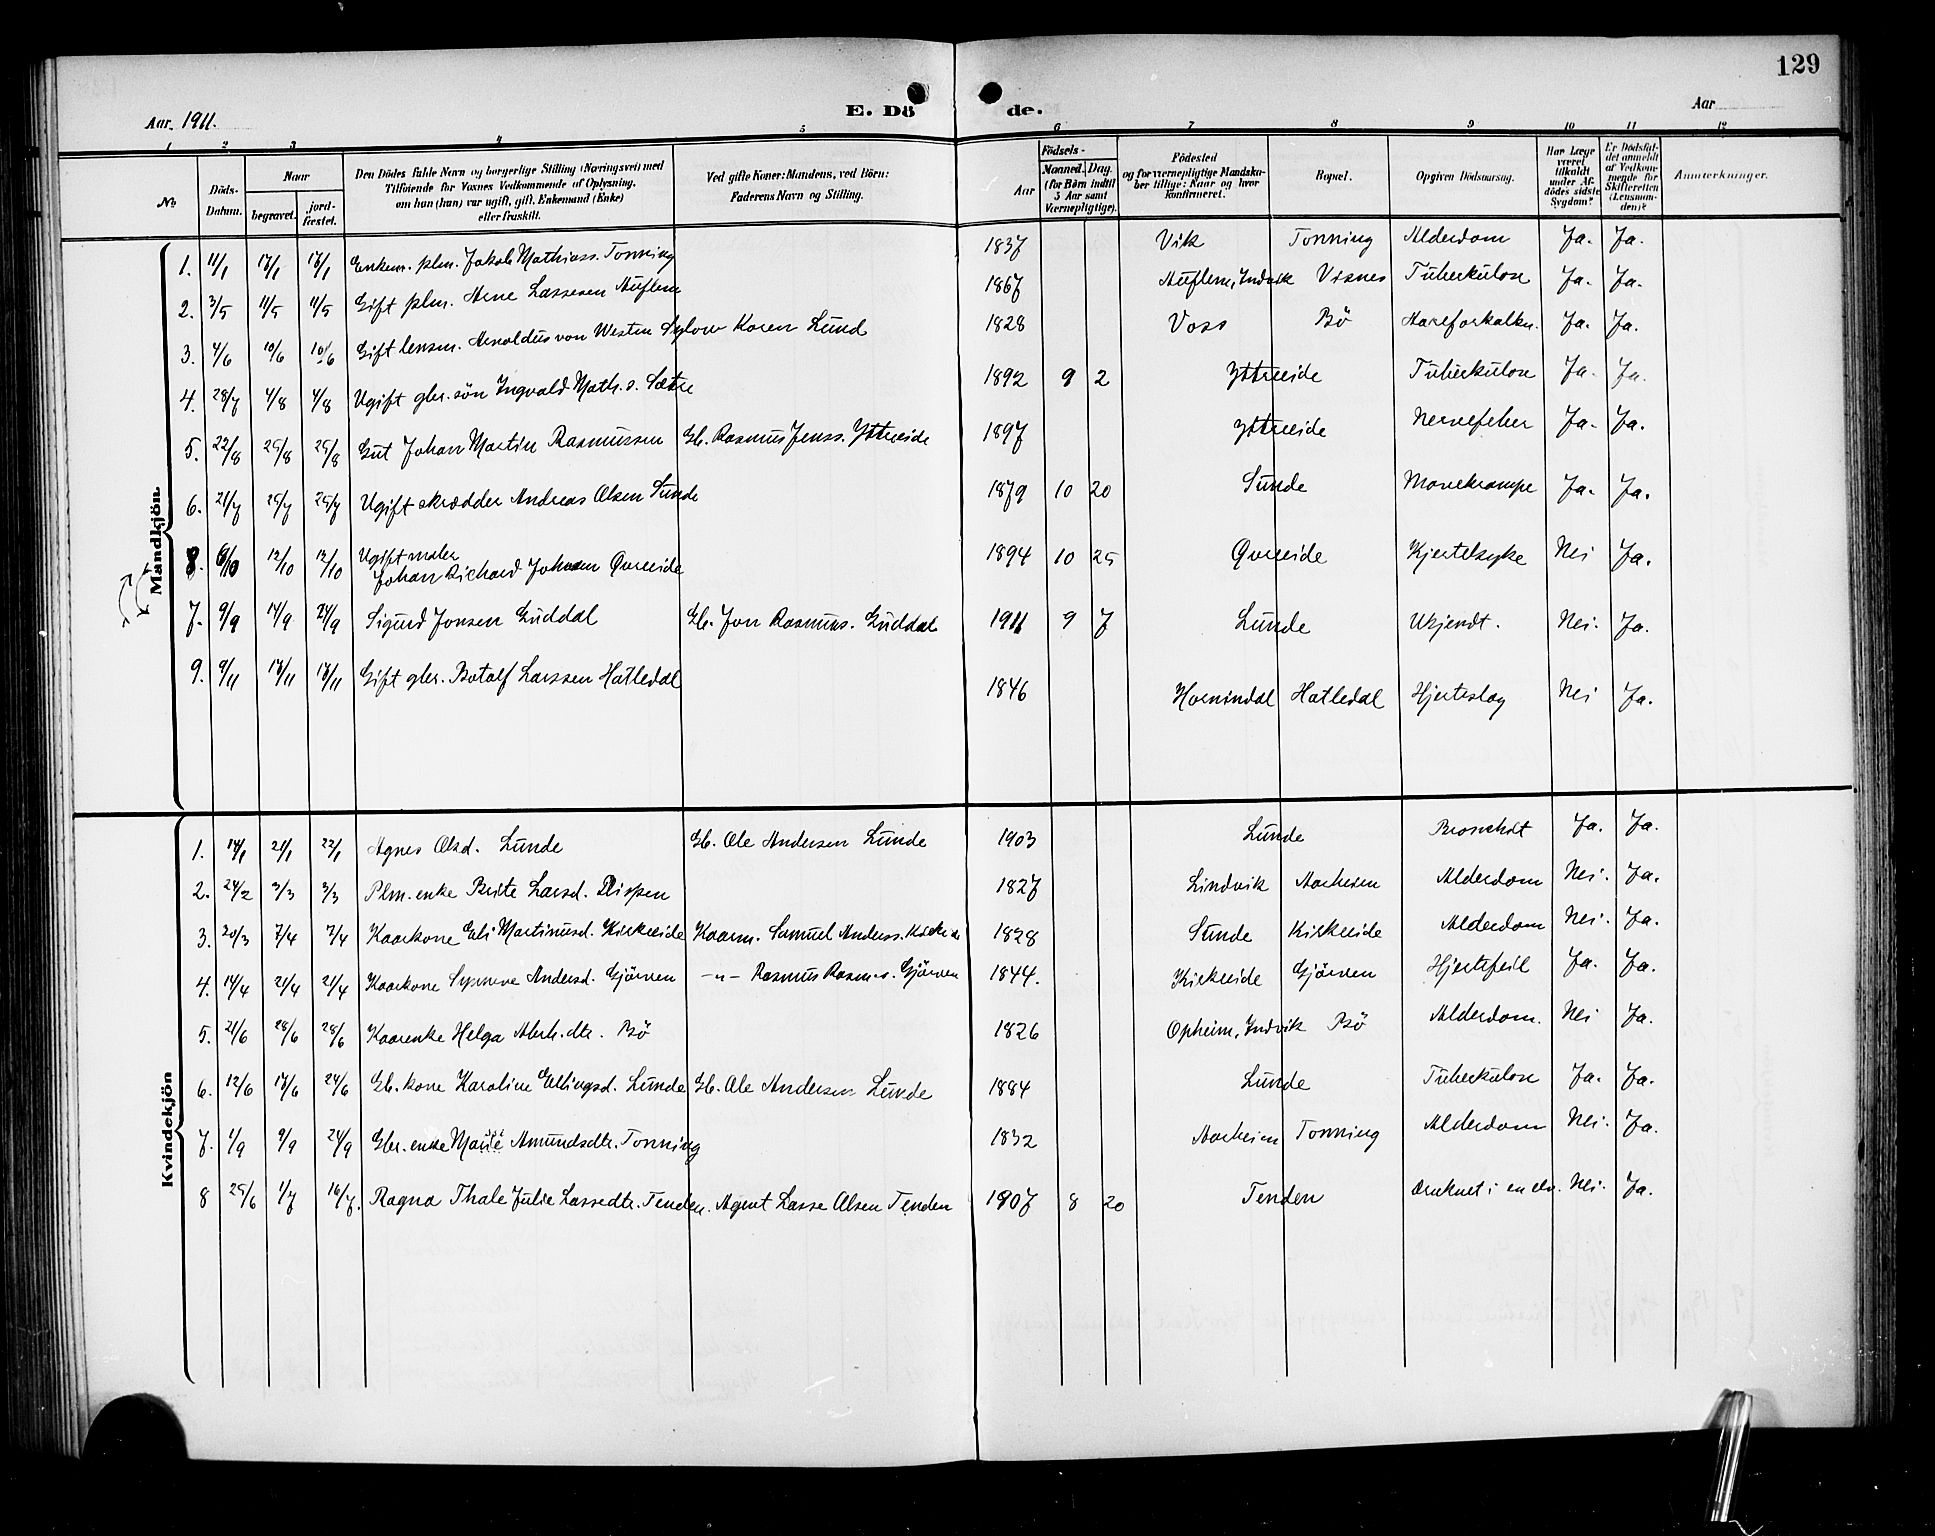 129
Aar. 1911.
E. Dö de.
Aar
1 2 3 4 5 6 7 8 9 10 11 12
No
Döds-Datum.
Naar
begravet.
jord-fæstet.
Den Dödes fulde Navn og borgerlige Stilling (Næringsvei) med
Tilföiende for Voxnes Vedkommende af Oplysning,
om hun (han) var ugift, gift, Enkemand (Enke)
eller fraskilt.
Ved gifte Koner: Mandens, ved Börn:
Faderens Navn og Stilling.
Födsels-
Aar
Maaned. Dag.
(for Börn indtil
5 Aar samt
Værnepligtige).
Födested
og for værnepligtige Mandska-
ber tillige: Naar og hvor
konfirmeret.
Bopæl.
Opgiven Dödsaarsag.
Har Læge
været
tilkaldt
under Af-
dödes sidste
Sygdom?
Er Dödsfal-
det anmeldt
af Vedkom-
mende for
Skifteretten
(Lensman-
den)?
Anmærkninger.
Mandkjön.
1. 11/1 17/1 17/1 Enkem. plm. Jakob Mathiass. Tonning 1837 Vik Tonning Alderdom Ja. Ja.
2. 3/5 11/5 11/5 Gift plm. Arne Lassesen Auflem 1867 Auflem, Indvik Visnes Tuberkulose Ja. Ja.
3. 4/6 10/6 10/6 Gift lensm. Arnoldus von Westen Sylow Koren Lund 1828 Voss Bö Aareforkalkn. Ja. Ja.
4. 28/7 4/8 4/8 Ugift gbr. sön Ingvald Math. s. Sætre 1892 9 2 Ytreeide Tuberkulose Ja. Ja.
5. 22/8 25/8 25/8 Gut Johan Martin Rasmussen Gb. Rasmus Jenss. Ytreeide 1897 Ytreeide Nervefeber Ja. Ja.
6. 21/7 25/7 25/7 Ugift skrædder Andreas Olsen Sunde 1879 10 20 Sunde Mavekrampe Ja. Ja.
8. 6/10 12/10 12/10 Ugift maler
Johan Richard Johnsen Qvreeide 1894 10 25 Qvreeide Kjertelsyke Nei Ja.
7. 9/9 14/9 24/9 Sigurd Jonsen Guddal Gb. Jon Rasmus. Guddal 1911 9 7 Lunde Ukjendt. Nei. Ja.
9. 9/11 17/11 17/11 Gift gbr. Botolf Larssen Hatledal 1846 Hornindal Hatledal Hjerteslag Nei Ja.
Kvindekjön
1. 14/1 21/1 22/1 Agnes Olsd. Lunde Gb. Ole Andersen Lunde 1903 Lunde Bronchit Ja. Ja.
2. 24/2 3/3 3/3 Plm. enke Brite Larsd. Dispen 1827 Lindvik Aarheim Alderdom Nei. Ja.
3. 20/3 7/4 7/4 Kaarkone Eli Martinusd. Kirkeeide Kaarm. Samuel Anderss. Kirkeeide 1828 Sunde Kirkeeide Alderdom Nei. Ja.
4. 14/4 21/4 21/4 Kaarkone Synneve Andersd. Gjörven -"- Rasmus Rasmus. Gjörven 1844. Kirkeeide Gjörven Hjertefeil Ja. Ja.
5. 21/6 28/6 28/6 Kaarenke Helga Abrh. dtr. Bö 1826 Opheim, Indvik Bö Alderdom. Nei Ja.
6. 12/6 17/6 24/6 Gb. kone Karoline Ellingsd. Lunde Gb. Ole Andersen Lunde 1884 Lunde Tuberkulose Ja. Ja.
7. 1/9 9/9 24/9 Gbr. enke Marte Amundsdtr. Tonning 1832 Aarheim Tonning Alderdom Nei. Ja.
8 25/6 1/7 16/7. Ragna Thale Julie Lassedtr. Tenden. Agent Lasse Olsen Tenden 1907 8 20 Tenden Druknet i en elv. Nei. Ja.